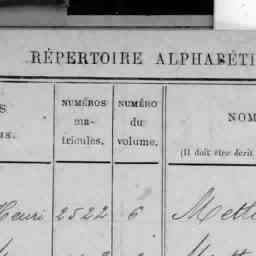 RÉPERTOIRE ALPHABÉTI
S
us.
NUMÉROS
ma-
tricules.
NUMÉRO
du
volume.
NOM
(Il doit être écrit
Henri 2522 6 Mett